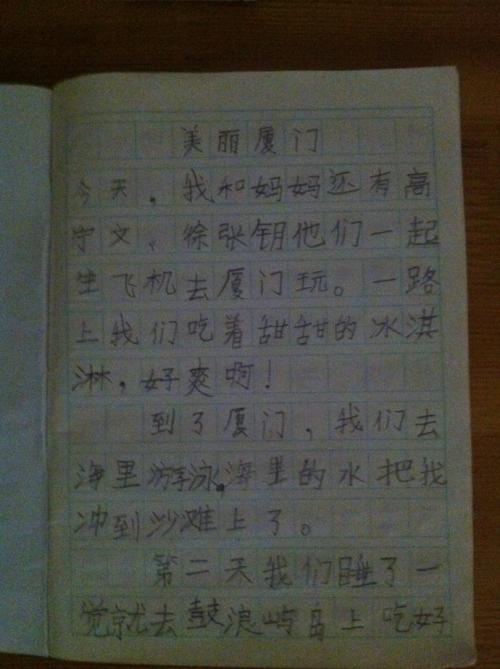 美丽厦门
今天，我和妈妈还有高
宁文、徐张钥他们一起
坐飞机去厦门玩。一路
上我们吃着甜甜的冰淇
淋，好爽啊！
到了厦门，我们去
海里游泳，海里的水把我
冲到沙滩上了。
第二天我们睡了一
觉就去鼓浪屿岛上吃好